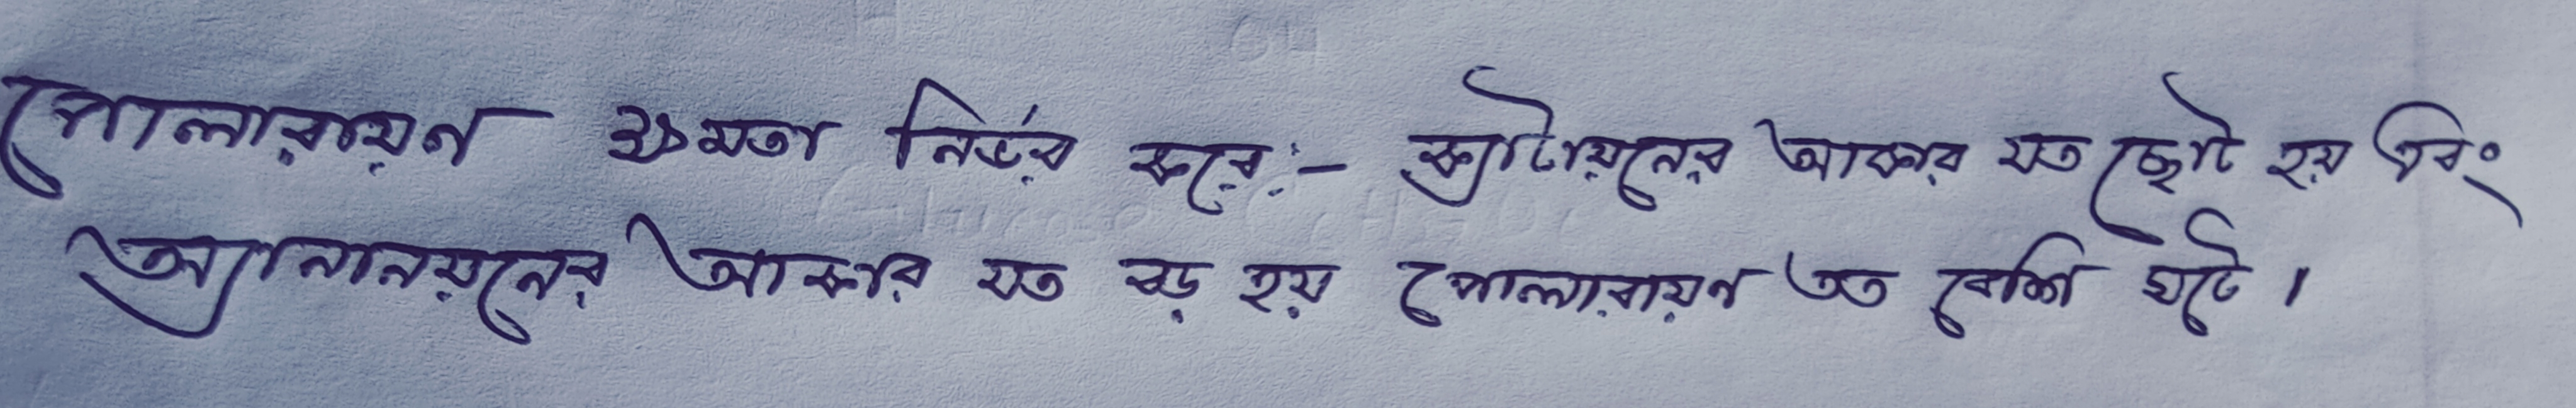 পোলারায়ণ ক্ষমতা নির্ভর করে:- ক্যাটায়নের আকার যত ছোট হয় এবং
অ্যানানয়নের আকার যত বড় হয় পোলারায়ণ তত বেশি ঘটে।